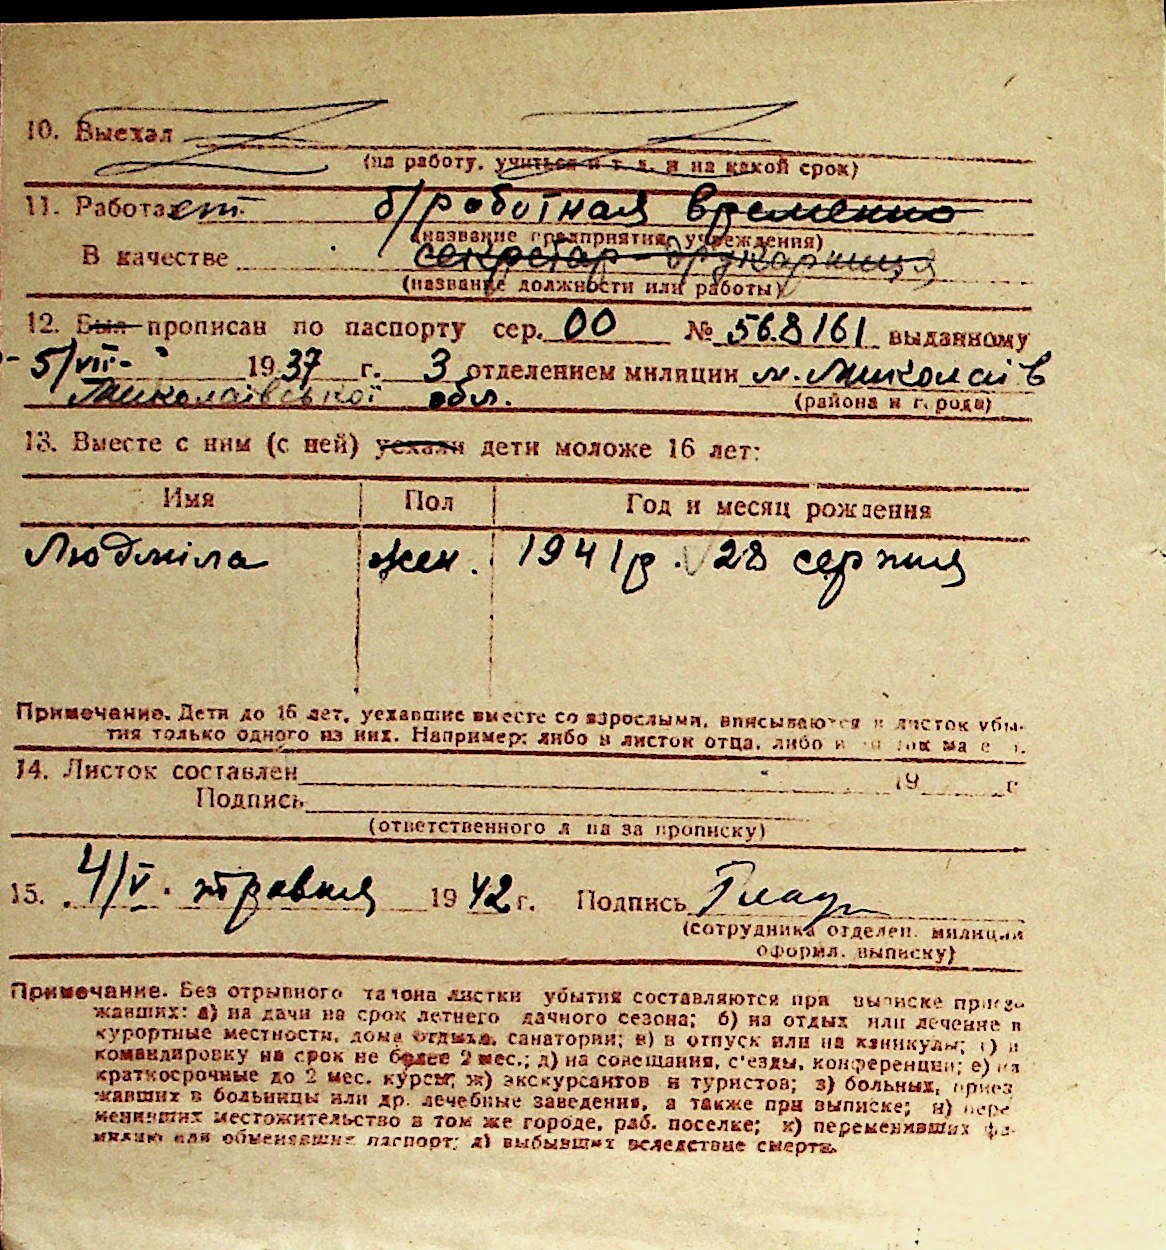 10. Выехал
(на работу, учиться и т. д. и на какой срок)
11. Работает б/работная временно
(название предприятия, учреждения)
В качестве секретар-друкарниця
(название должности или работы)
12. Был прописан по паспорту сер. 00 № 568161 выданному
5/VII- 1937 г. 3 отделением милиции м. Миколаїв
Миколаївської обл. (района и города)
13. Вместе с ним (с ней) уехали дети моложе 16 лет:
Имя Пол Год и месяц рождения
Людміла жен. 1941 р. 28 серпня
Примечание. Дети до 16 лет, уехавшие вместе со взрослыми, вписываются в листок убы-
тия только одного из них. Например: либо в листок отца, либо в
14. Листок составлен 19 г.
Подпись
(ответственного л на за прописку)
15. 4/V. травня 1942 г. Подпись
(сотрудника отделен. милиции
оформл. выписку)
Примечание. Без отрывного талона листки убытия составляются при выписке приез-
жавших: а) на дачи на срок летнего дачного сезона; б) на отдых или лечение в
курортные местности, дома отдыха, санатории; в) в отпуск или на каникулы; г) в
командировку на срок не более 2 мес.; д) на совещания, с'езды, конференции; е) на
краткосрочные до 2 мес. курсы; ж) экскурсантов и туристов; з) больных, приез
жавших в больницы или др. лечебные заведения, а также при выписке; и) пере
менивших местожительство в том же городе, раб. поселке; к) переменивших фа-
милию или обменявших паспорт; л) выбывших вследствие смерти.